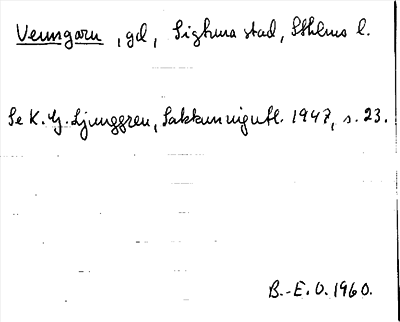 Venngarn, gd, Sigtuna stad, Sthlms l.
Se K. G. Ljunggren, Sakkunnigutl. 1947, s. 23.
B.-E. O. 1960.